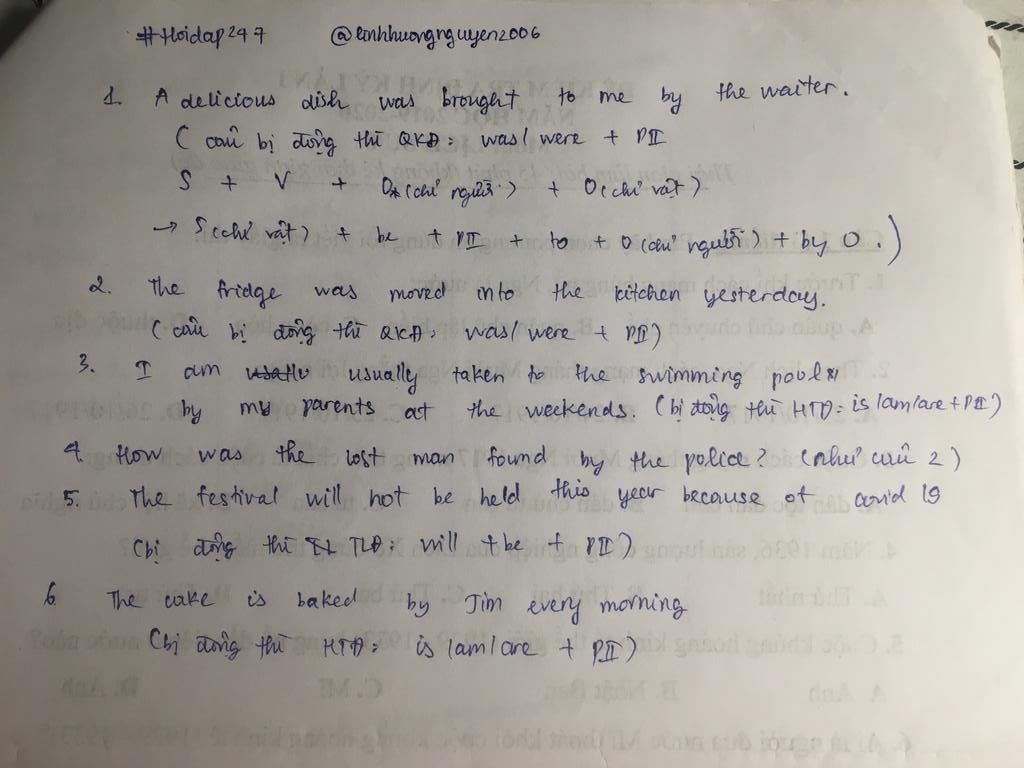 #Hoidap247 @linhhuongnguyen2006
1. A delicious dish was brought to me by the waiter.
( câu bị động thì QKĐ: was/were + PII
S + V + O (chỉ người) + O (chỉ vật)
→ S (chỉ vật) + be + PII + to + O (chỉ người) + by O.)
2. The fridge was moved into the kitchen yesterday.
( câu bị động thì QKĐ: was/were + PII)
3. I am usually taken to the swimming pool
by my parents at the weekends. (bị động thì HTĐ: is/am/are + PII)
4. How was the lost man found by the police? (như câu 2)
5. The festival will not be held this year because of covid 19
(bị động thì TLĐ: will + be + PII)
6 The cake is baked by Jim every morning
(bị động thì HTĐ: is/am/are + PII)